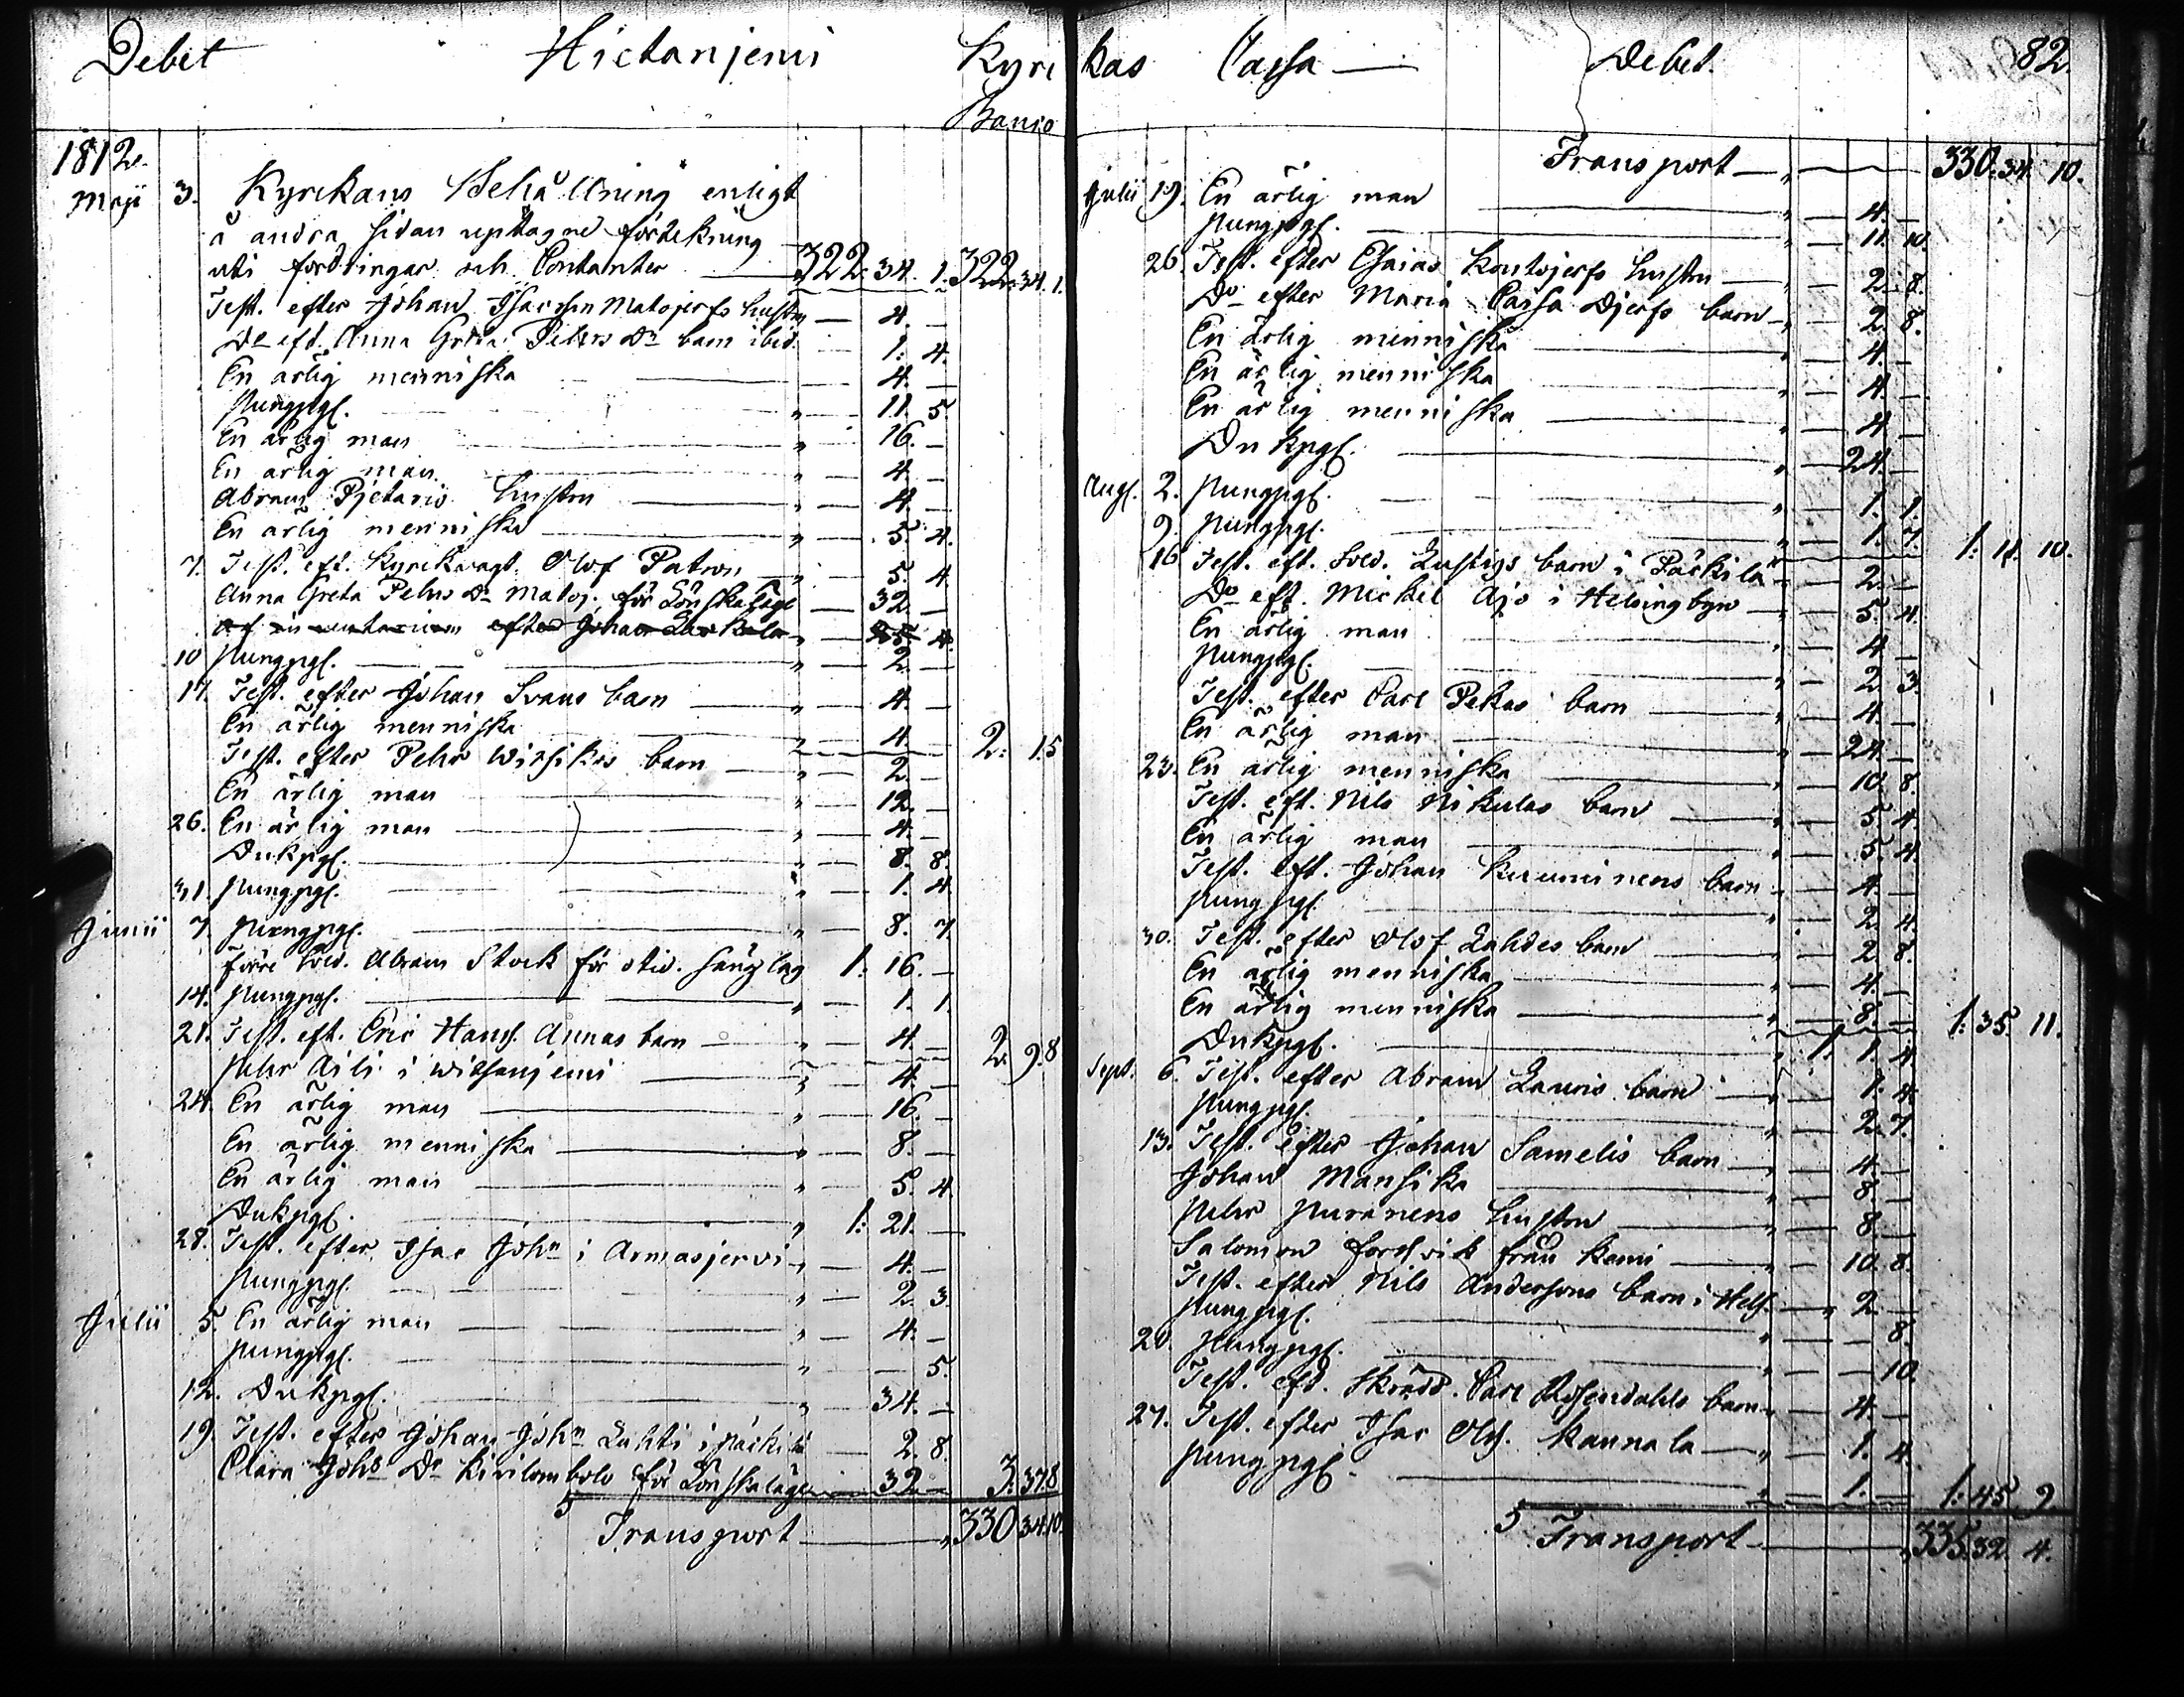 Debet Hietanjemi Kyre
Banco
1812.
Maji 3. Kyrckans Behållning enligt
å andra sidan uptagne förtekning
uti fordringar och Contanter 322. 34. 1. 322. 34. 1.
Test. efter Johan Isacsson Matojerfs hustru 4. —
Do eft. Anna Greta Pehrs Dr barn ibid. 1. 4.
En ärlig menniska 4. —
Pungpgr. 11. 5.
En ärlig man 16. —
En ärlig man 4. —
Abram Pjetaris hustru 4. —
En ärlig menniska 5. 4.
7. Test. eft. Kyrckovagt. Olof Patron 5. 4.
Anna Greta Pehrs Dr Matoj. för Lönskaläge 32. —
10 Pungpgr. 2. —
17. Test. efter Johan Svans barn 4. —
En ärlig menniska 4. — 2. 15
Test. efter Pehr barn 2. —
En ärlig man 12. —
26. En ärlig man 4. —
Dukpgr. 8. 8.
31. Pungpgr. 1. 4.
Junii 7. Pungpgr. 8. 7.
förre Sold. Abram Stock för otid. sänglag 1. 16. —
14. Pungpgr. 1. 1.
21. Test. eft. Eric Hans. Annas barn 4. — 2. 9. 8
Pehr Aili i Witsanjemi 4. —
24. En ärlig man 16. —
En ärlig menniska 8. —
En ärlig man 5. 4.
Dukpgr. 1: 21. —
28. Test. efter Isac John i Armasjervi 4. —
Pungpgr. 2. 3.
Julii 5. En ärlig man 4. —
Pungpgr. — 5.
12. Dukpgr. 34. —
19. Test. efter Johan John Lahti i Päckilä 2. 8.
Clara Johs Dr Kivilombolo för Lönskaläge 32. — 3: 37. 8
Transport 330. 34. 10.
kas Cassa Debet. 82.
Transport 330. 34. 10.
Julii 19. En ärlig man 4. —
Pungpgr. 11. 10.
26. Test. efter Esaias Kontojerfs hustru 2. 8.
Do efter Maria barn 2. 8.
En ärlig menniska 4. —
En ärlig menniska 4. —
En ärlig menniska 4. —
Dukpgr. 24. —
Augs. 2. Pungpgr. 1. 1.
9. Pungpgr. 1. 7. 1: 11. 10.
16 Test. eft. Sold. Lustigs barn i Päckilä 2. —
Do eft. Mickel Ajo i Helsingbyn 5. 4.
En ärlig man 4. —
Pungpgr. 2. 3.
Test. efter Carl Pekas barn 4. —
En ärlig man 24. —
23. En ärlig menniska 10. 8.
Test. eft. Nils Nikulas barn 5. 4.
En ärlig man 5. 4.
Test. eft. Johan barn 4. —
Pungpgr. 2. 4.
30. Test. efter Olof Lahdes barn 2. 8.
En ärlig menniska 4. —
En ärlig menniska 8. — 1: 35. 11.
Dukpgr. 1. 1. 4
Sept. 6. Test. efter Abram Lauris barn 1. 4.
Pungpgr. 2. 7.
13. Test. efter Johan Samelis barn 4. —
Johan Mansika 8. —
Pehr Puranens hustru 8. —
Salomon från Kemi 10. 8.
Test. efter Nils Anderssons barn i Hels. 2. —
Pungpgr. — 8.
20. Pungpgr. — 10.
Test. eft. Skrädd. Carl Rosendahls barn 4. —
27. Test. efter Isac Ols. Kannala 1. 4.
Pungpgr. 1. — 1: 45. 9
Transport 335. 32. 4.